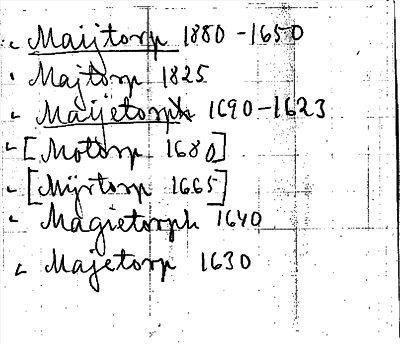 Maijtorp 1880-1650
Majtorp 1825
Maijetorp 1690-1623
[Motorp 1680]
[Mijrtorp 1665]
Magietorph 1640
Majetorp 1630